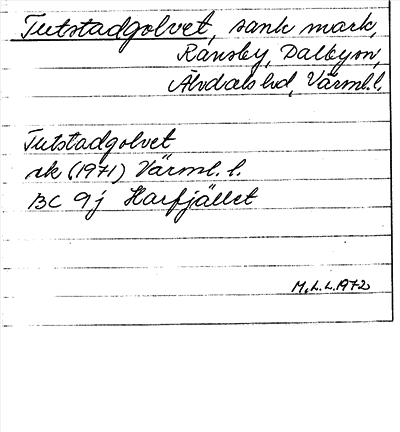 Tutstadgolvet, sank mark,
Ransby, Dalbysn,
Älvdals hd, Värml. l.
Tutstadgolvet
ek (1971) Värml. l.
BC 9j Harfjället
M. L. L. 1972